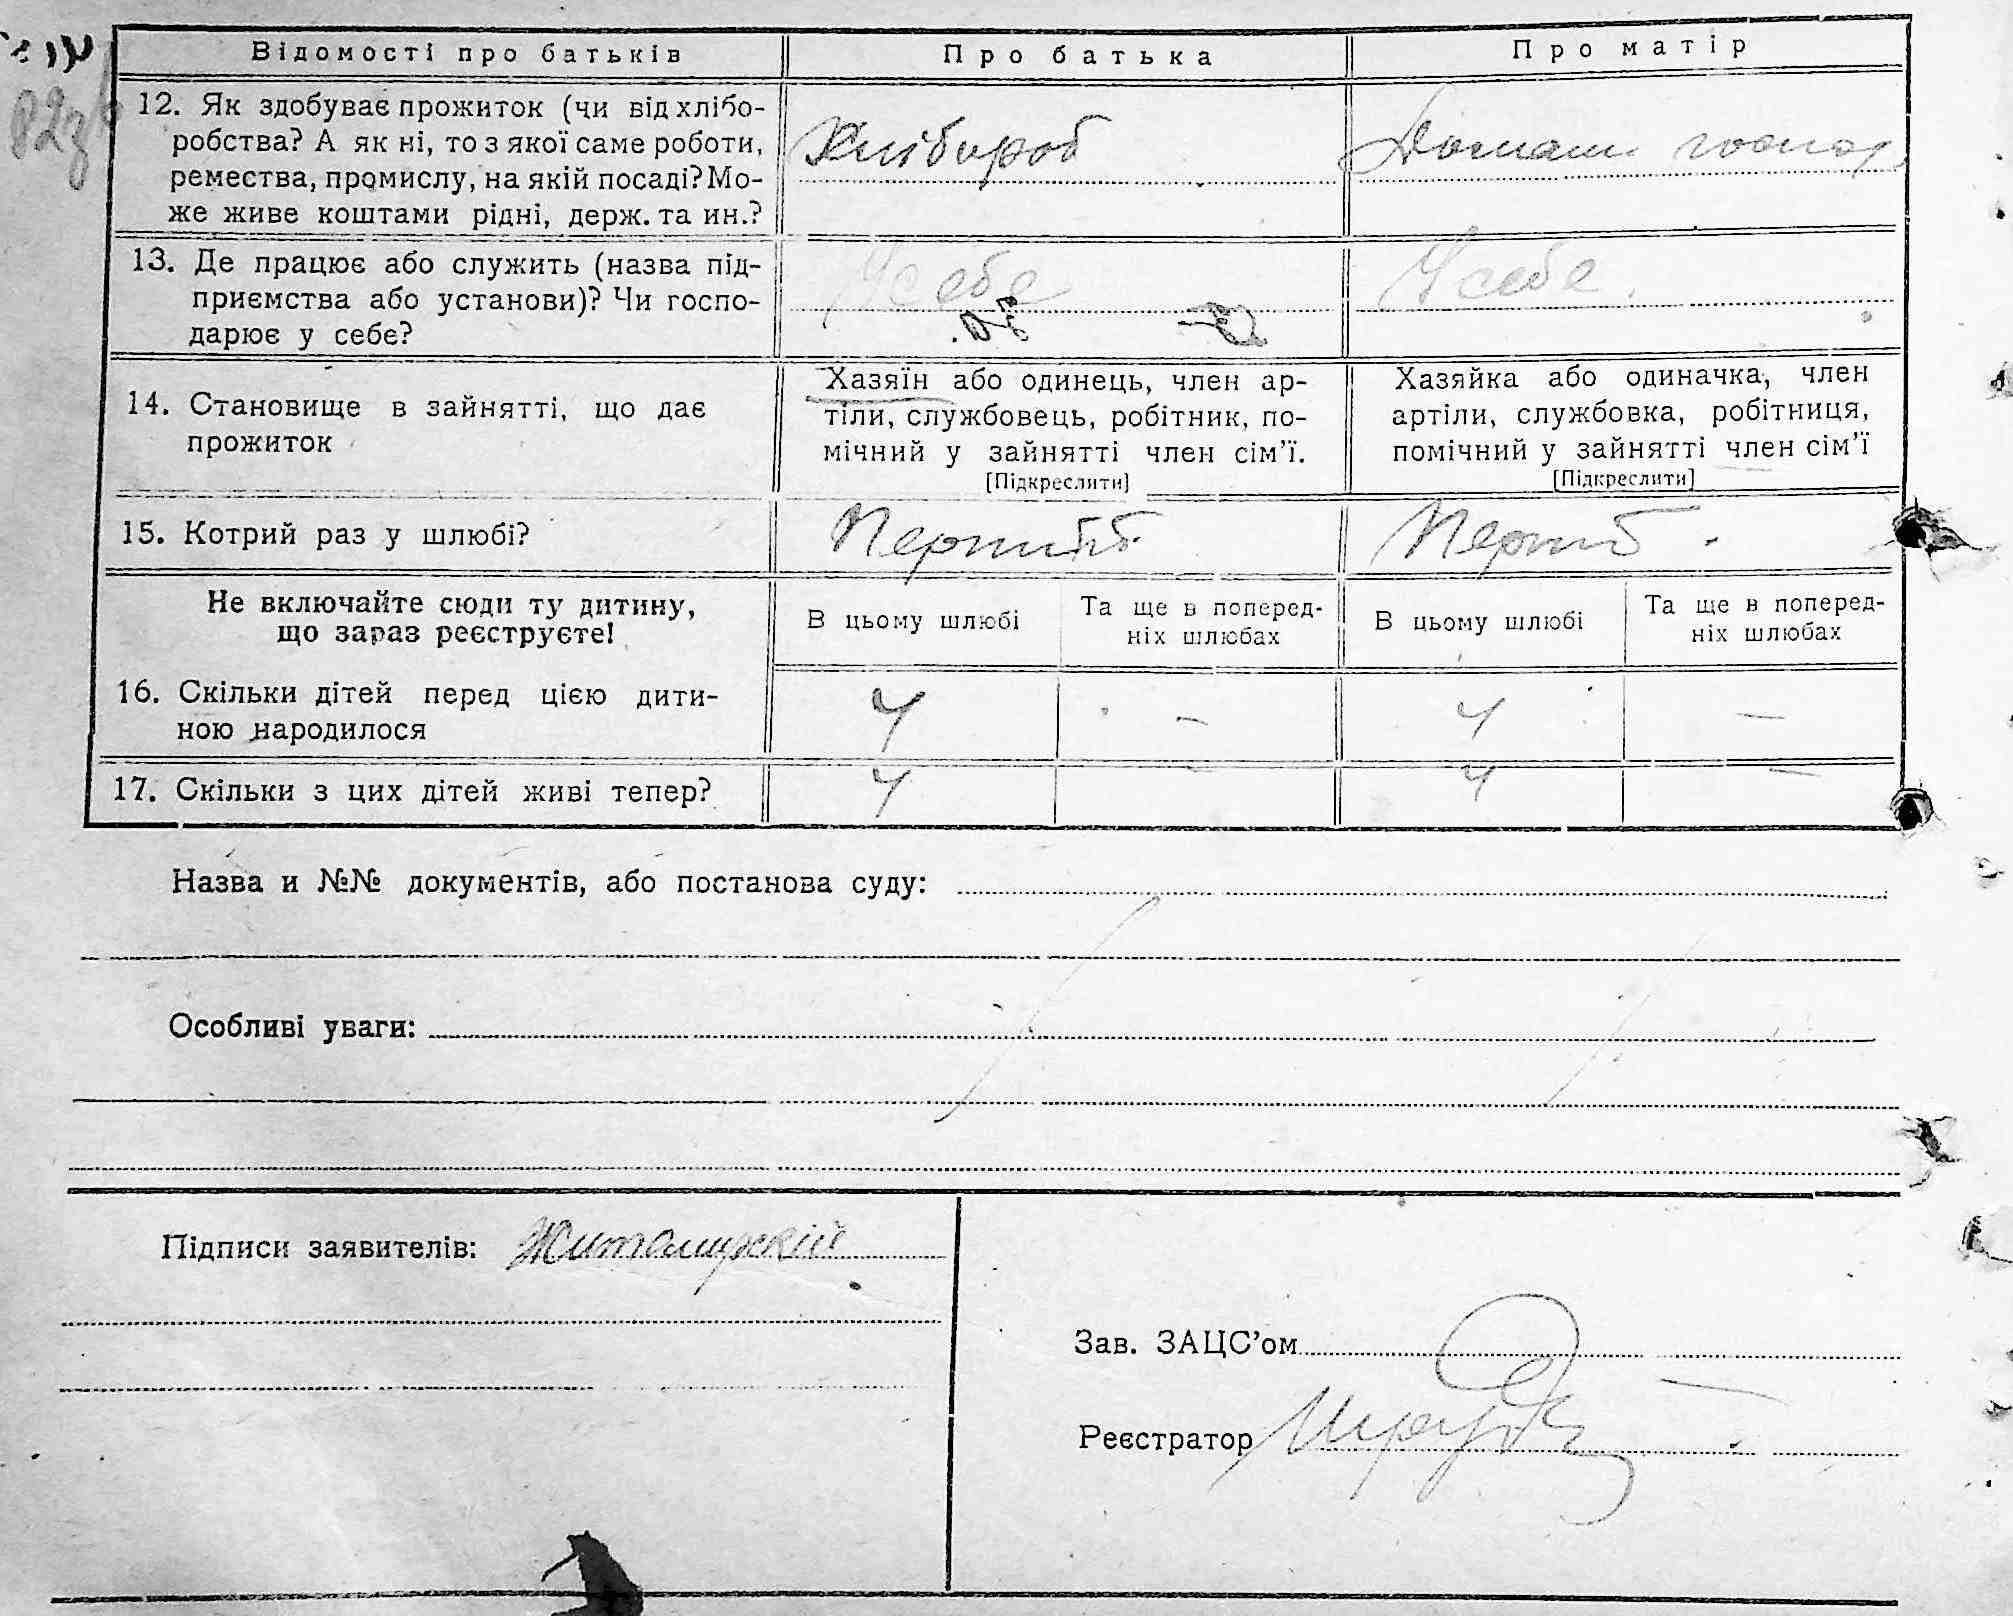 Відомості про батьків Про батька Про матір
12. Як здобуває прожиток (чи від хлібо-
робства? А як ні, то з якої саме роботи,
ремества, промислу, на якій посаді? Мо-
же живе коштами рідні, держ. та ин.?
Хлібороб Домаш господ
13. Де працює або служить (назва під-
приємства або установи)? Чи госпо-
дарює у себе?
У себе У себе
14. Становище в зайнятті, що дає
прожиток
Хазяїн або одинець, член ар-
тіли, службовець, робітник, по-
мічний у зайнятті член сім'ї.
[Підкреслити]
Хазяйка або одиначка, член
артіли, службовка, робітниця,
помічний у зайнятті член сім'ї
[Підкреслити]
15. Котрий раз у шлюбі? Перший Перший
Не включайте сюди ту дитину,
що зараз реєструєте!
В цьому шлюбі
Та ще в поперед-
ніх шлюбах
В цьому шлюбі
Та ще в поперед-
ніх шлюбах
16. Скільки дітей перед цією дити-
ною народилося
4 – 4 –
17. Скільки з цих дітей живі тепер? 4 – 4 –
Назва и №№ документів, або постанова суду:
Особливі уваги:
Підписи заявителів: Житомирскій
Зав. ЗАЦС'ом
Реєстратор